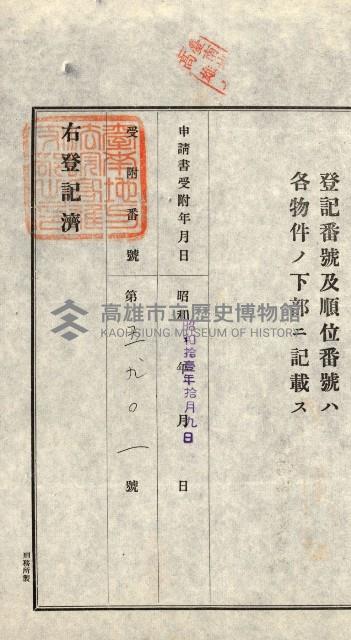 登記番號及順位番號ハ
各物件ノ下部ニ記載ス
申請書受附年月日
昭和 年 月 日
昭和拾壹年拾月九日
受附番號
第五九〇一號
右登記濟
高雄市立歷史博物館
KAOHSIUNG MUSEUM OF HISTORY
刑務所製